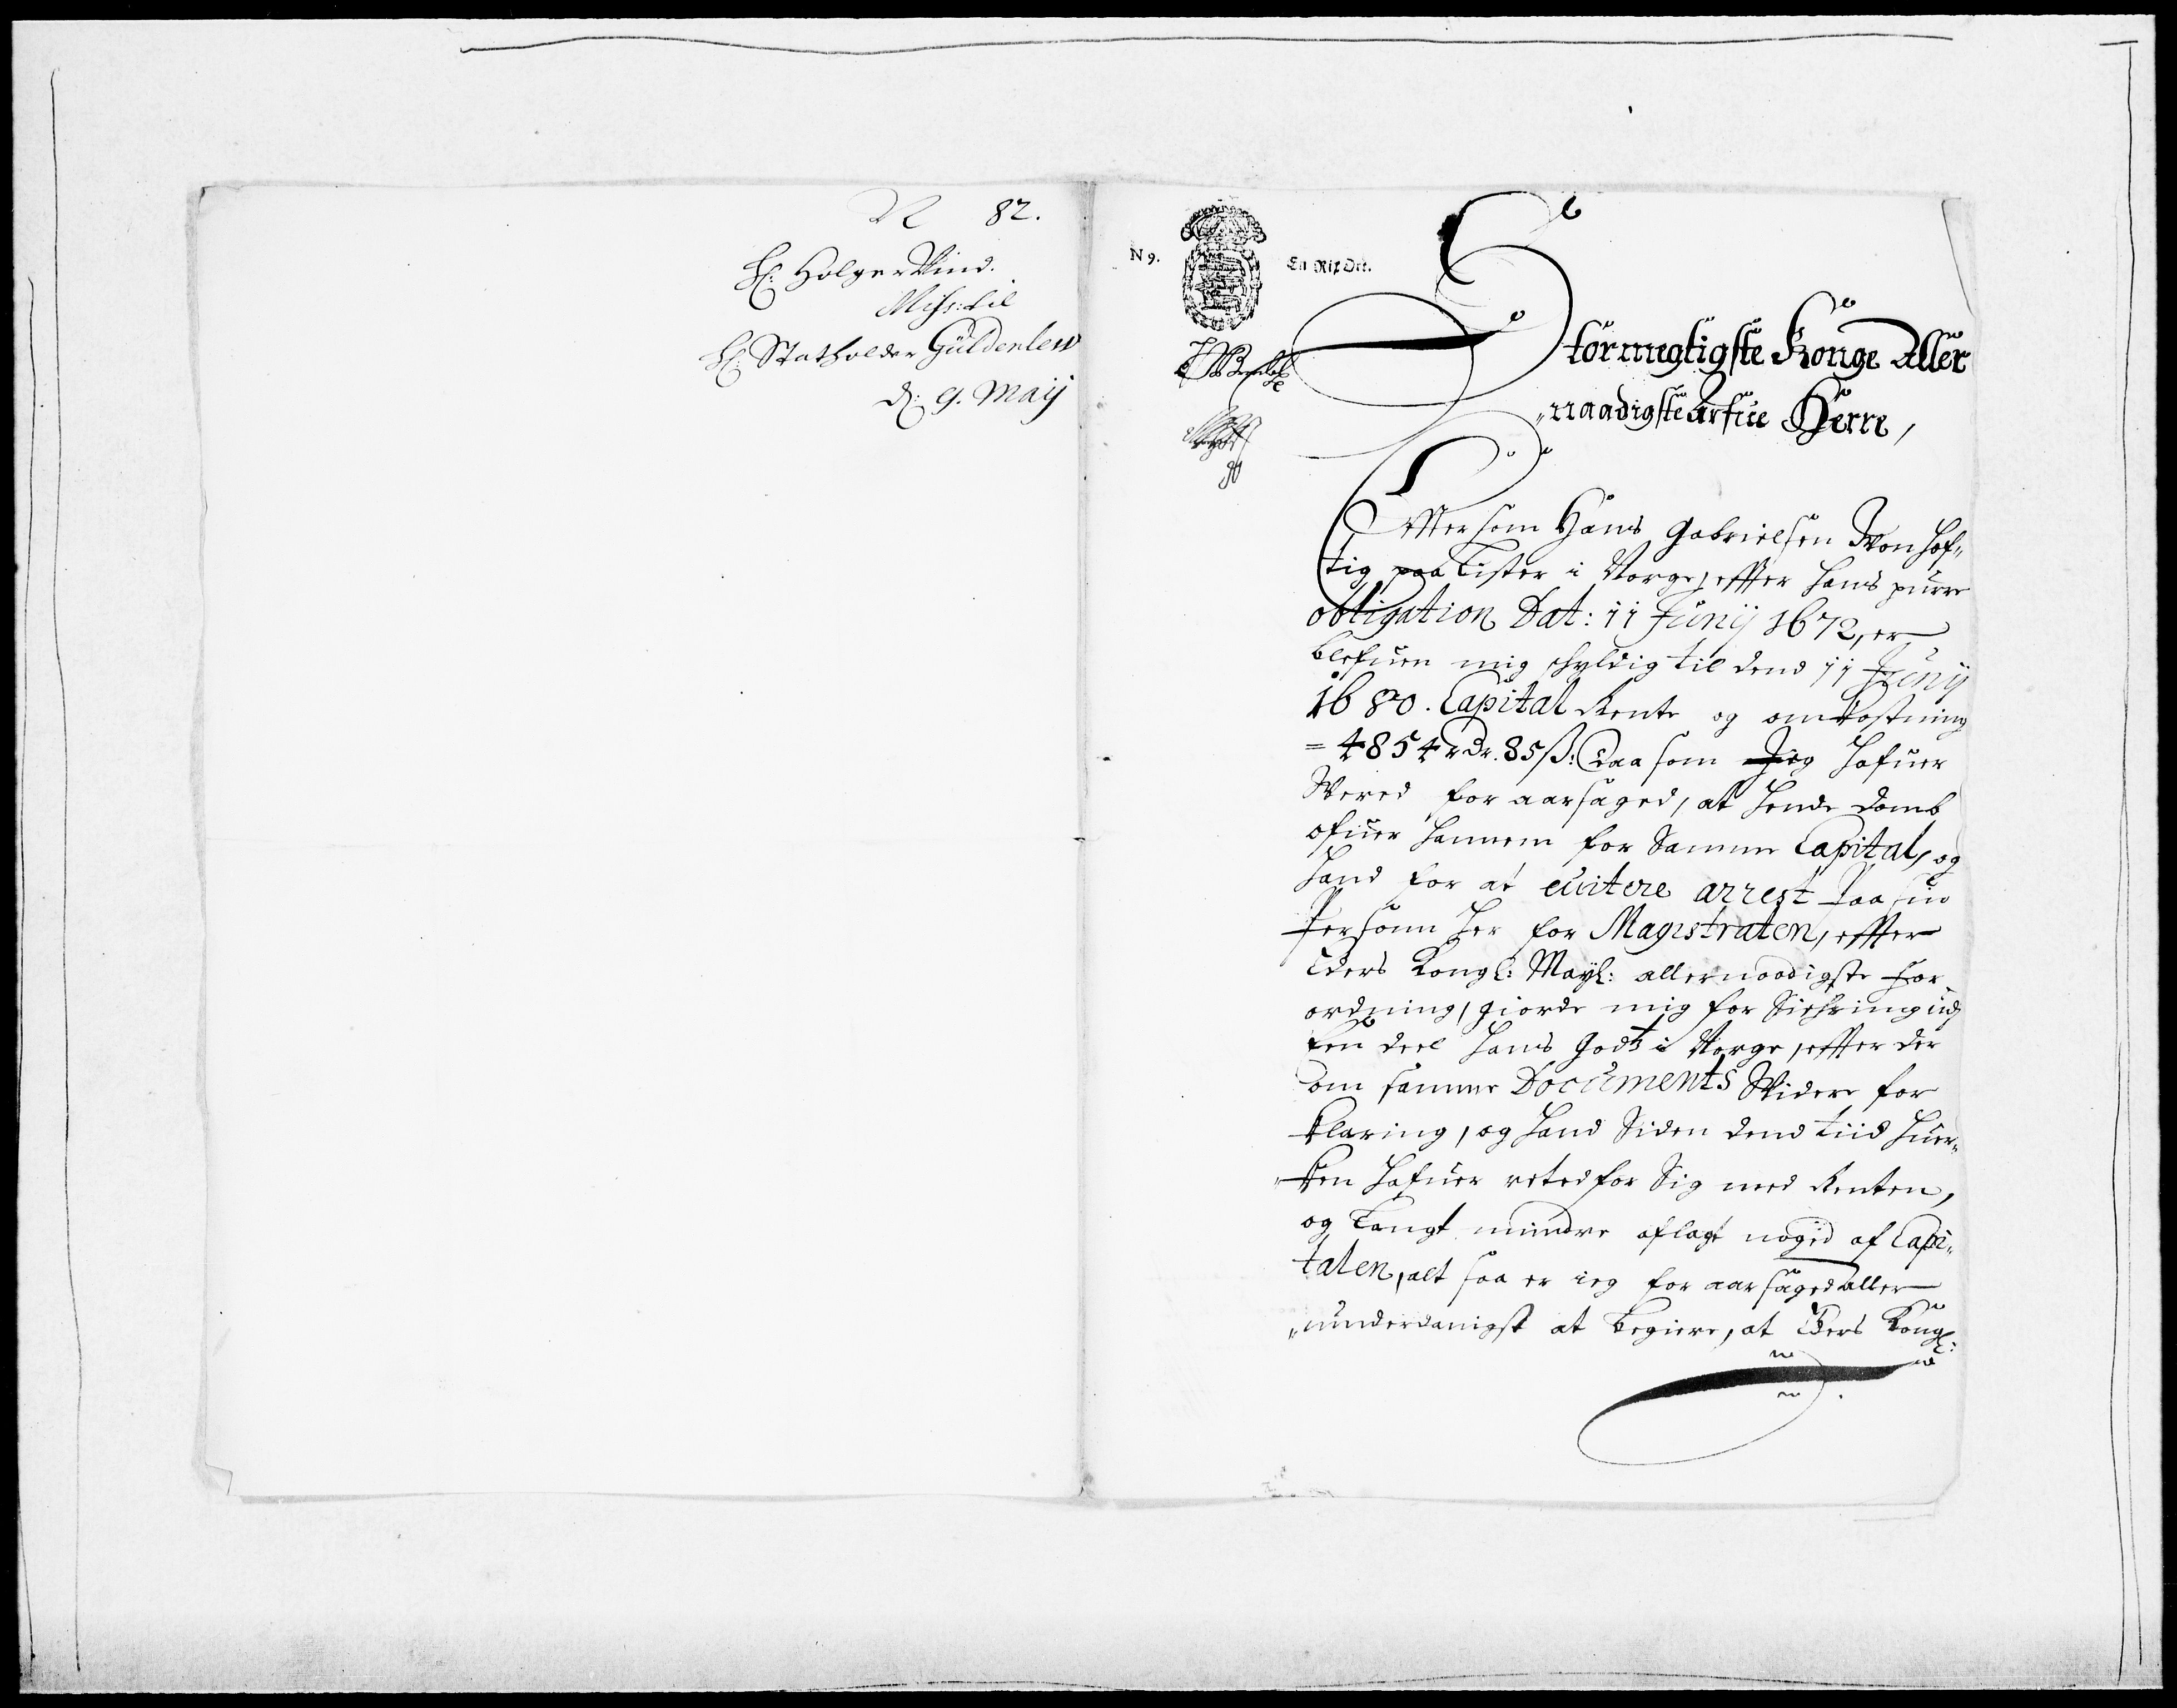 N 82.
Hr: Holger Vind.
Miss: til
Hr: Statholder Güldenlew
d: 9. Maij
N 9.
En Rix Dlr.
Stormegtigste Konge Aller
naadigste Arfue Herre,
Effter som Hans Gabrielsen Won hof„
tig paa Lister i Norge, effter hans pure
obligation Dat: 11 Junij 1672, er
blefuen mig skyldig til dend 11 Junij
1680. Capital Rente og omkostning
= 4854 rdr. 85 ß: Saa som Jeg hafuer
Wered foraarsaged, at hende domb
ofuer hannem for Samme Capital, og
hand for at evitere arrest paa sin
Persohn her for Magistraten, effter
Eders Kongl: Mayt: allernaadigste for
ordning, giorde mig forsichring udj
een deel hans Godtz i Norge, effter der
om samme Documents Widere for
klaring, og hand Siden dend tiid huer„
„ken hafuer reted for Sig med Renten,
og Langt mindre aflagt nogid af Capi„
talen, alt saa er ieg foraarsaged aller
„underdanigst at begiere, at Eders Kongl: